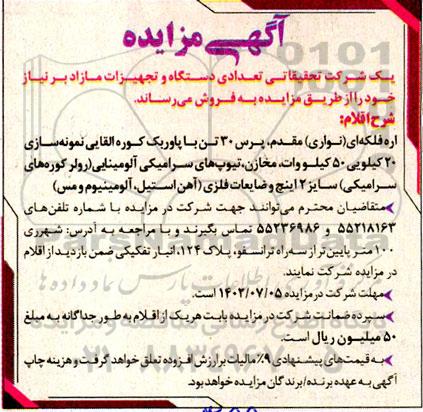 آگهی مزایده
یک شرکت تحقیقاتی تعدادی دستگاه و تجهیزات مازاد بر نیاز
خود را از طریق مزایده به فروش می‌رساند.
شرح اقلام:
اره فلکه‌ای (نواری) مقدم، پرس ۳۰ تن با پاوربک کوره القایی نمونه‌سازی
۲۰ کیلویی ۵۰ کیلو وات، مخازن، تیوپ‌های سرامیکی آلومینایی (رولر کوره‌های
سرامیکی) سایز ۲ اینچ و ضایعات فلزی (آهن استیل، آلومینیوم و مس)
متقاضیان محترم می‌توانند جهت شرکت در مزایده با شماره تلفن‌های
۵۵۲۱۸۱۶۳ و ۵۵۲۳۶۹۸۶ تماس بگیرند و با مراجعه به آدرس: شهرری
۱۰۰ متر پایین تر از سه راه ترانسفو، پلاک ۱۲۴، انبار تفکیکی ضمن بازدید از اقلام
در مزایده شرکت نمایند.
مهلت شرکت در مزایده ۱۴۰۲/۰۷/۰۵ است.
سپرده ضمانت شرکت در مزایده بابت هر یک از اقلام به طور جداگانه به مبلغ
۵۰ میلیون ریال است.
به قیمت‌های پیشنهادی ۹٪ مالیات بر ارزش افزوده تعلق خواهد گرفت و هزینه چاپ
آگهی به عهده برنده/برندگان مزایده خواهد بود.